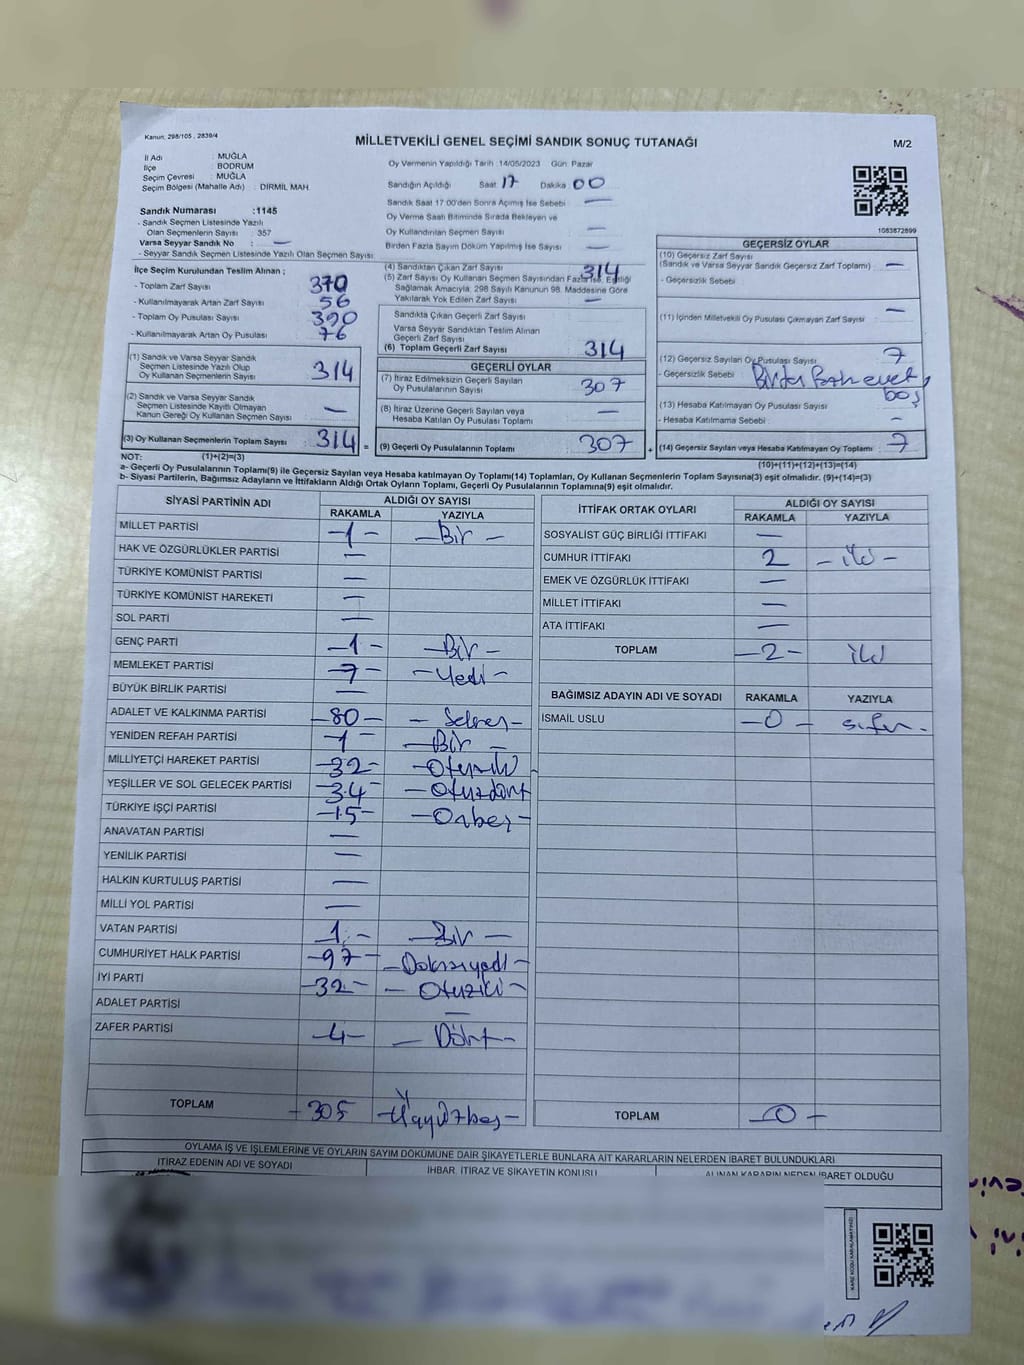 Kanun: 298/105 , 2839/4
MİLLETVEKİLİ GENEL SEÇİMİ SANDIK SONUÇ TUTANAĞI
M/2
İl Adı : MUĞLA
İlçe : BODRUM
Seçim Çevresi : MUĞLA
Seçim Bölgesi (Mahalle Adı) : DİRMİL MAH.
Oy Vermenin Yapıldığı Tarih :14/05/2023 Gün: Pazar
Sandığın Açıldığı Saat 17 Dakika 00
Sandık Saat 17:00'den Sonra Açılmış İse Sebebi —
Oy Verme Saati Bitiminde Sırada Bekleyen ve
Oy Kullandırılan Seçmen Sayısı —
Birden Fazla Sayım Döküm Yapılmış İse Sayısı —
1083872899
Sandık Numarası :1145
- Sandık Seçmen Listesinde Yazılı
Olan Seçmenlerin Sayısı : 357
Varsa Seyyar Sandık No : —
- Seyyar Sandık Seçmen Listesinde Yazılı Olan Seçmen Sayısı:
İlçe Seçim Kurulundan Teslim Alınan ;
- Toplam Zarf Sayısı 370
- Kullanılmayarak Artan Zarf Sayısı 56
- Toplam Oy Pusulası Sayısı 390
- Kullanılmayarak Artan Oy Pusulası 76
(1) Sandık ve Varsa Seyyar Sandık
Seçmen Listesinde Yazılı Olup
Oy Kullanan Seçmenlerin Sayısı 314
(2) Sandık ve Varsa Seyyar Sandık
Seçmen Listesinde Kayıtlı Olmayan
Kanun Gereği Oy Kullanan Seçmen Sayısı —
(3) Oy Kullanan Seçmenlerin Toplam Sayısı 314 =
(1)+(2)=(3)
(4) Sandıktan Çıkan Zarf Sayısı 314
(5) Zarf Sayısı Oy Kullanan Seçmen Sayısından Fazla İse, Eşitliği
Sağlamak Amacıyla; 298 Sayılı Kanunun 98. Maddesine Göre
Yakılarak Yok Edilen Zarf Sayısı —
Sandıkta Çıkan Geçerli Zarf Sayısı
Varsa Seyyar Sandıktan Teslim Alınan
Geçerli Zarf Sayısı
(6) Toplam Geçerli Zarf Sayısı 314
GEÇERLİ OYLAR
(7) İtiraz Edilmeksizin Geçerli Sayılan
Oy Pusulalarının Sayısı 307
(8) İtiraz Üzerine Geçerli Sayılan veya
Hesaba Katılan Oy Pusulası Toplamı —
(9) Geçerli Oy Pusulalarının Toplamı 307 +
GEÇERSİZ OYLAR
(10) Geçersiz Zarf Sayısı
(Sandık ve Varsa Seyyar Sandık Geçersiz Zarf Toplamı) —
- Geçersizlik Sebebi
(11) İçinden Milletvekili Oy Pusulası Çıkmayan Zarf Sayısı —
(12) Geçersiz Sayılan Oy Pusulası Sayısı 7
- Geçersizlik Sebebi Birden
boş
(13) Hesaba Katılmayan Oy Pusulası Sayısı —
- Hesaba Katılmama Sebebi —
(14) Geçersiz Sayılan veya Hesaba Katılmayan Oy Toplamı 7
(10)+(11)+(12)+(13)=(14)
NOT:
a- Geçerli Oy Pusulalarının Toplamı(9) ile Geçersiz Sayılan veya Hesaba katılmayan Oy Toplamı(14) Toplamları, Oy Kullanan Seçmenlerin Toplam Sayısına(3) eşit olmalıdır. (9)+(14)=(3)
b- Siyasi Partilerin, Bağımsız Adayların ve İttifakların Aldığı Ortak Oyların Toplamı, Geçerli Oy Pusulalarının Toplamına(9) eşit olmalıdır.
SİYASİ PARTİNİN ADI ALDIĞI OY SAYISI
RAKAMLA YAZIYLA
MİLLET PARTİSİ -1- -Bir-
HAK VE ÖZGÜRLÜKLER PARTİSİ —
TÜRKİYE KOMÜNİST PARTİSİ —
TÜRKİYE KOMÜNİST HAREKETİ —
SOL PARTİ —
GENÇ PARTİ -1- -Bir-
MEMLEKET PARTİSİ -7- -Yedi-
BÜYÜK BİRLİK PARTİSİ —
ADALET VE KALKINMA PARTİSİ -80- -Seksen-
YENİDEN REFAH PARTİSİ -1- -Bir-
MİLLİYETÇİ HAREKET PARTİSİ -32- -Otuziki-
YEŞİLLER VE SOL GELECEK PARTİSİ -34- -Otuzdört
TÜRKİYE İŞÇİ PARTİSİ -15- -Onbeş-
ANAVATAN PARTİSİ —
YENİLİK PARTİSİ —
HALKIN KURTULUŞ PARTİSİ —
MİLLİ YOL PARTİSİ —
VATAN PARTİSİ 1- -Bir-
CUMHURİYET HALK PARTİSİ -97- -Doksanyedi-
İYİ PARTİ -32- -Otuziki-
ADALET PARTİSİ —
ZAFER PARTİSİ -4- -Dört-
TOPLAM -305 -Üçyüzbeş-
İTTİFAK ORTAK OYLARI ALDIĞI OY SAYISI
RAKAMLA YAZIYLA
SOSYALİST GÜÇ BİRLİĞİ İTTİFAKI —
CUMHUR İTTİFAKI 2 -iki-
EMEK VE ÖZGÜRLÜK İTTİFAKI —
MİLLET İTTİFAKI —
ATA İTTİFAKI —
TOPLAM -2- iki
BAĞIMSIZ ADAYIN ADI VE SOYADI RAKAMLA YAZIYLA
İSMAİL USLU -0- sıfır-
TOPLAM -0-
OYLAMA İŞ VE İŞLEMLERİNE VE OYLARIN SAYIM DÖKÜMÜNE DAİR ŞİKAYETLERLE BUNLARA AİT KARARLARIN NELERDEN İBARET BULUNDUKLARI
İTİRAZ EDENİN ADI VE SOYADI İHBAR, İTİRAZ VE ŞİKAYETİN KONUSU ALINAN KARARIN NEDEN İBARET OLDUĞU